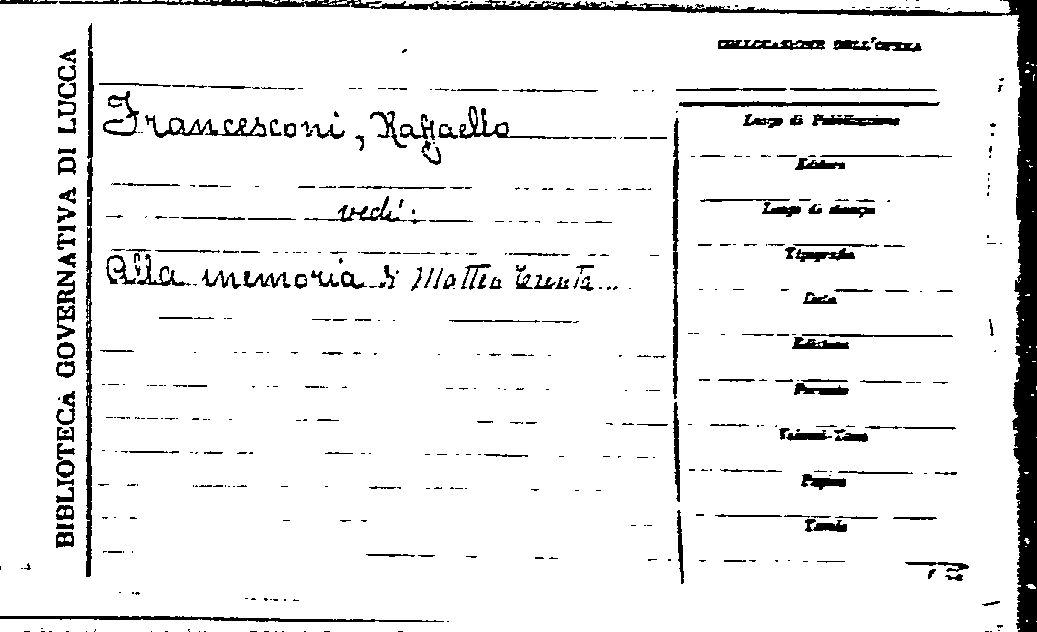 BIBLIOTECA GOVERNATIVA DI LUCCA
COLLOCAZIONE DELL'OPERA
Francesconi, Raffaello
vedi:
Alla memoria di Matteo Trenta...
Luogo di Pubblicazione
Editore
Luogo di stampa
Tipografia
Data
Edizione
Formato
Volumi-Tomo
Pagine
Tavole